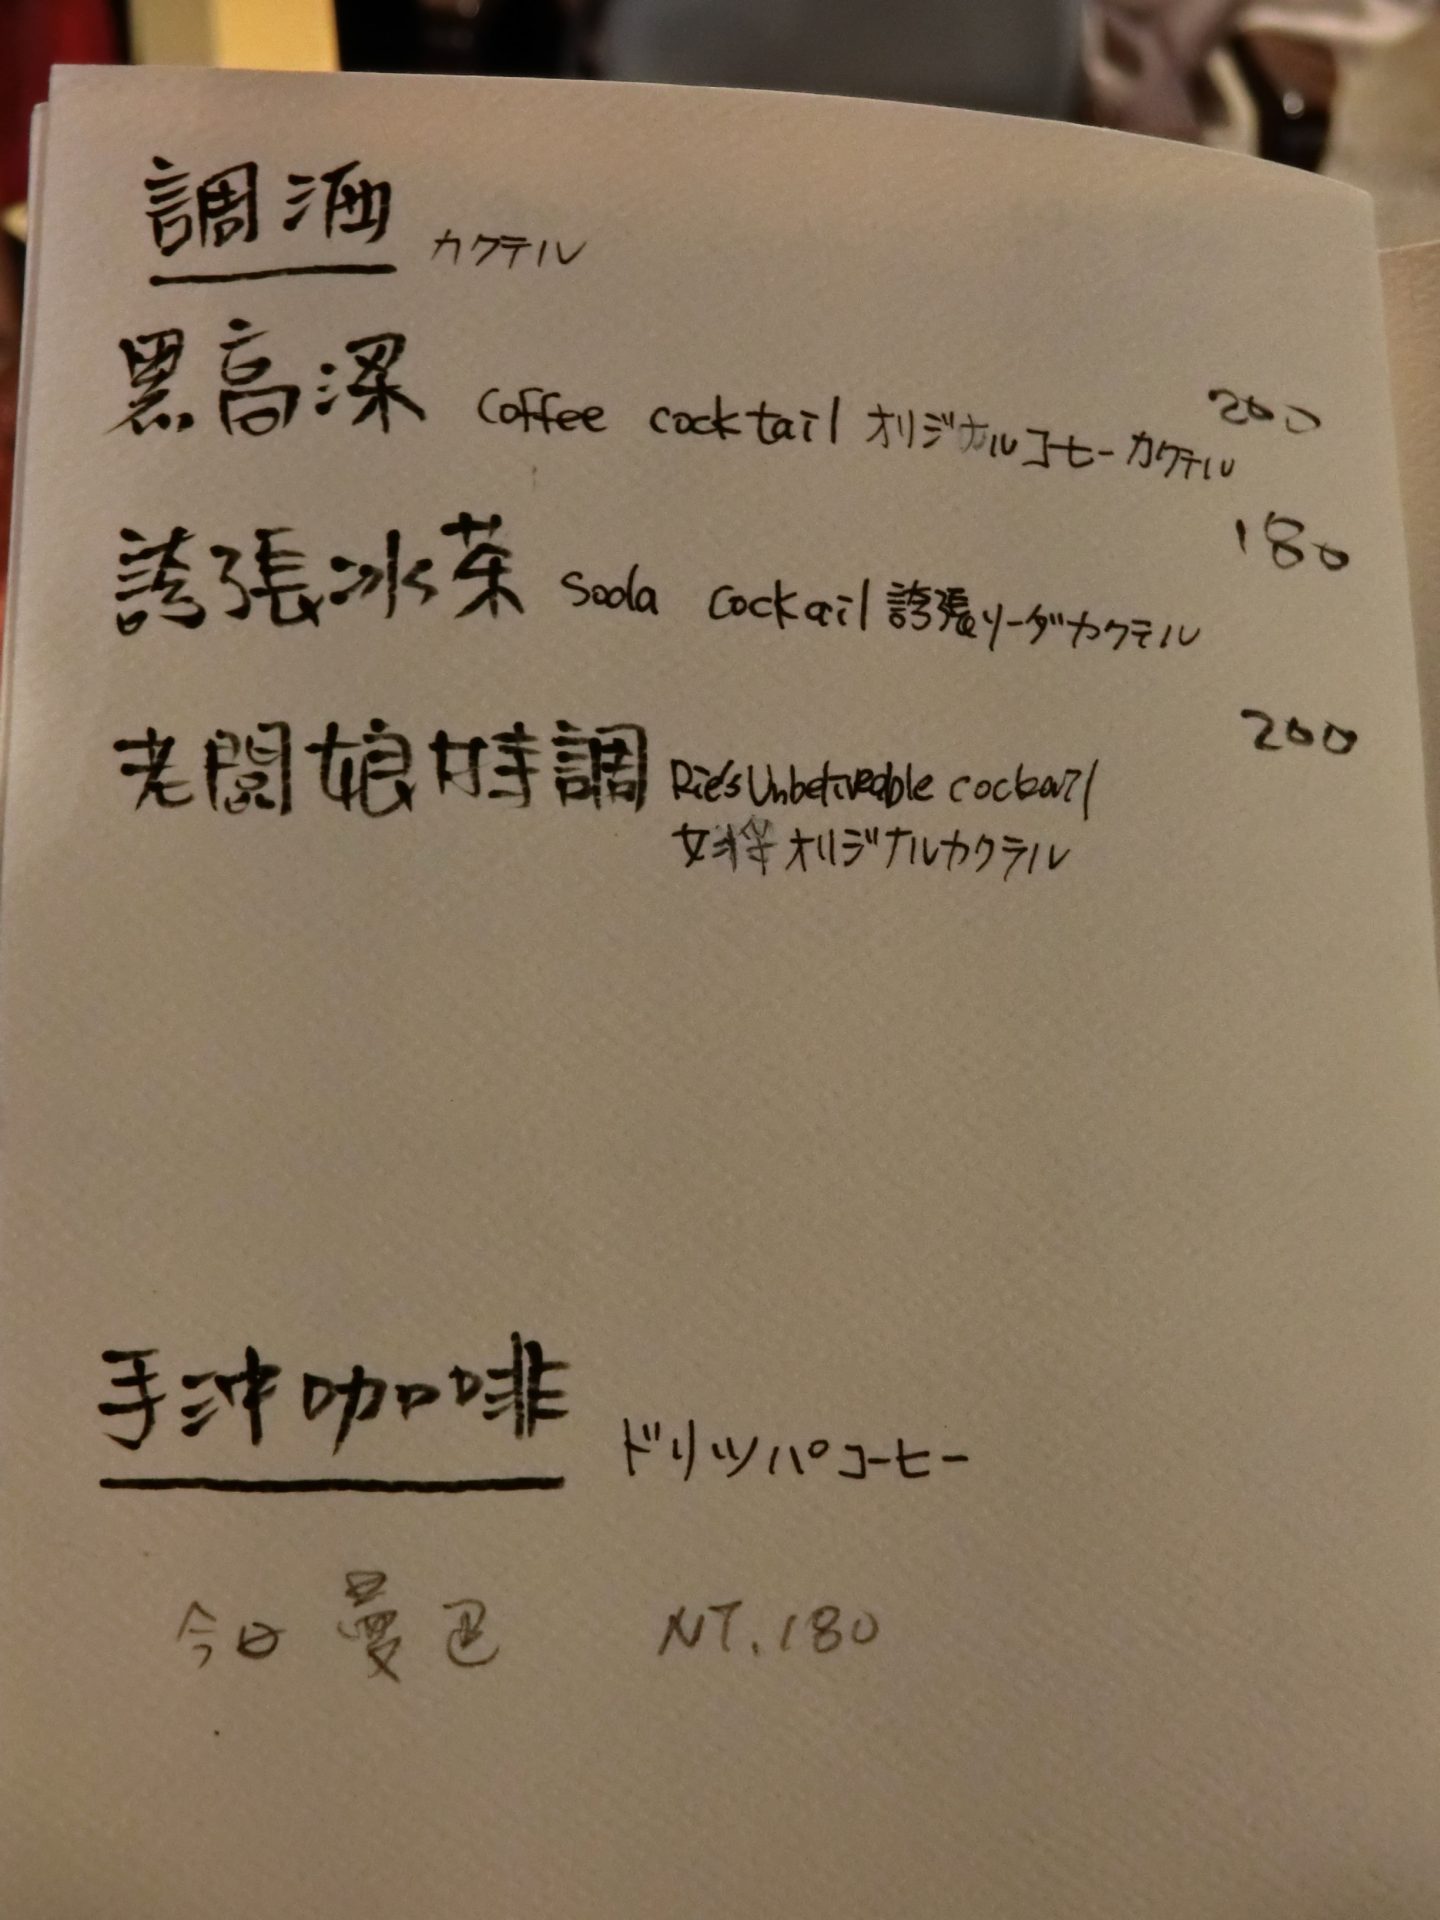 調酒 カクテル
黑高深 coffee cocktail オリジナルコーヒーカクテル 200
誇張冰茶 soda cockail 誇張ソーダカクテル 180
老闆娘特調 Rie's Unbeliveable cocktail 200
オリジナルカクテル
手沖咖啡 ドリッパコーヒー
今日 曼巴 NT.180